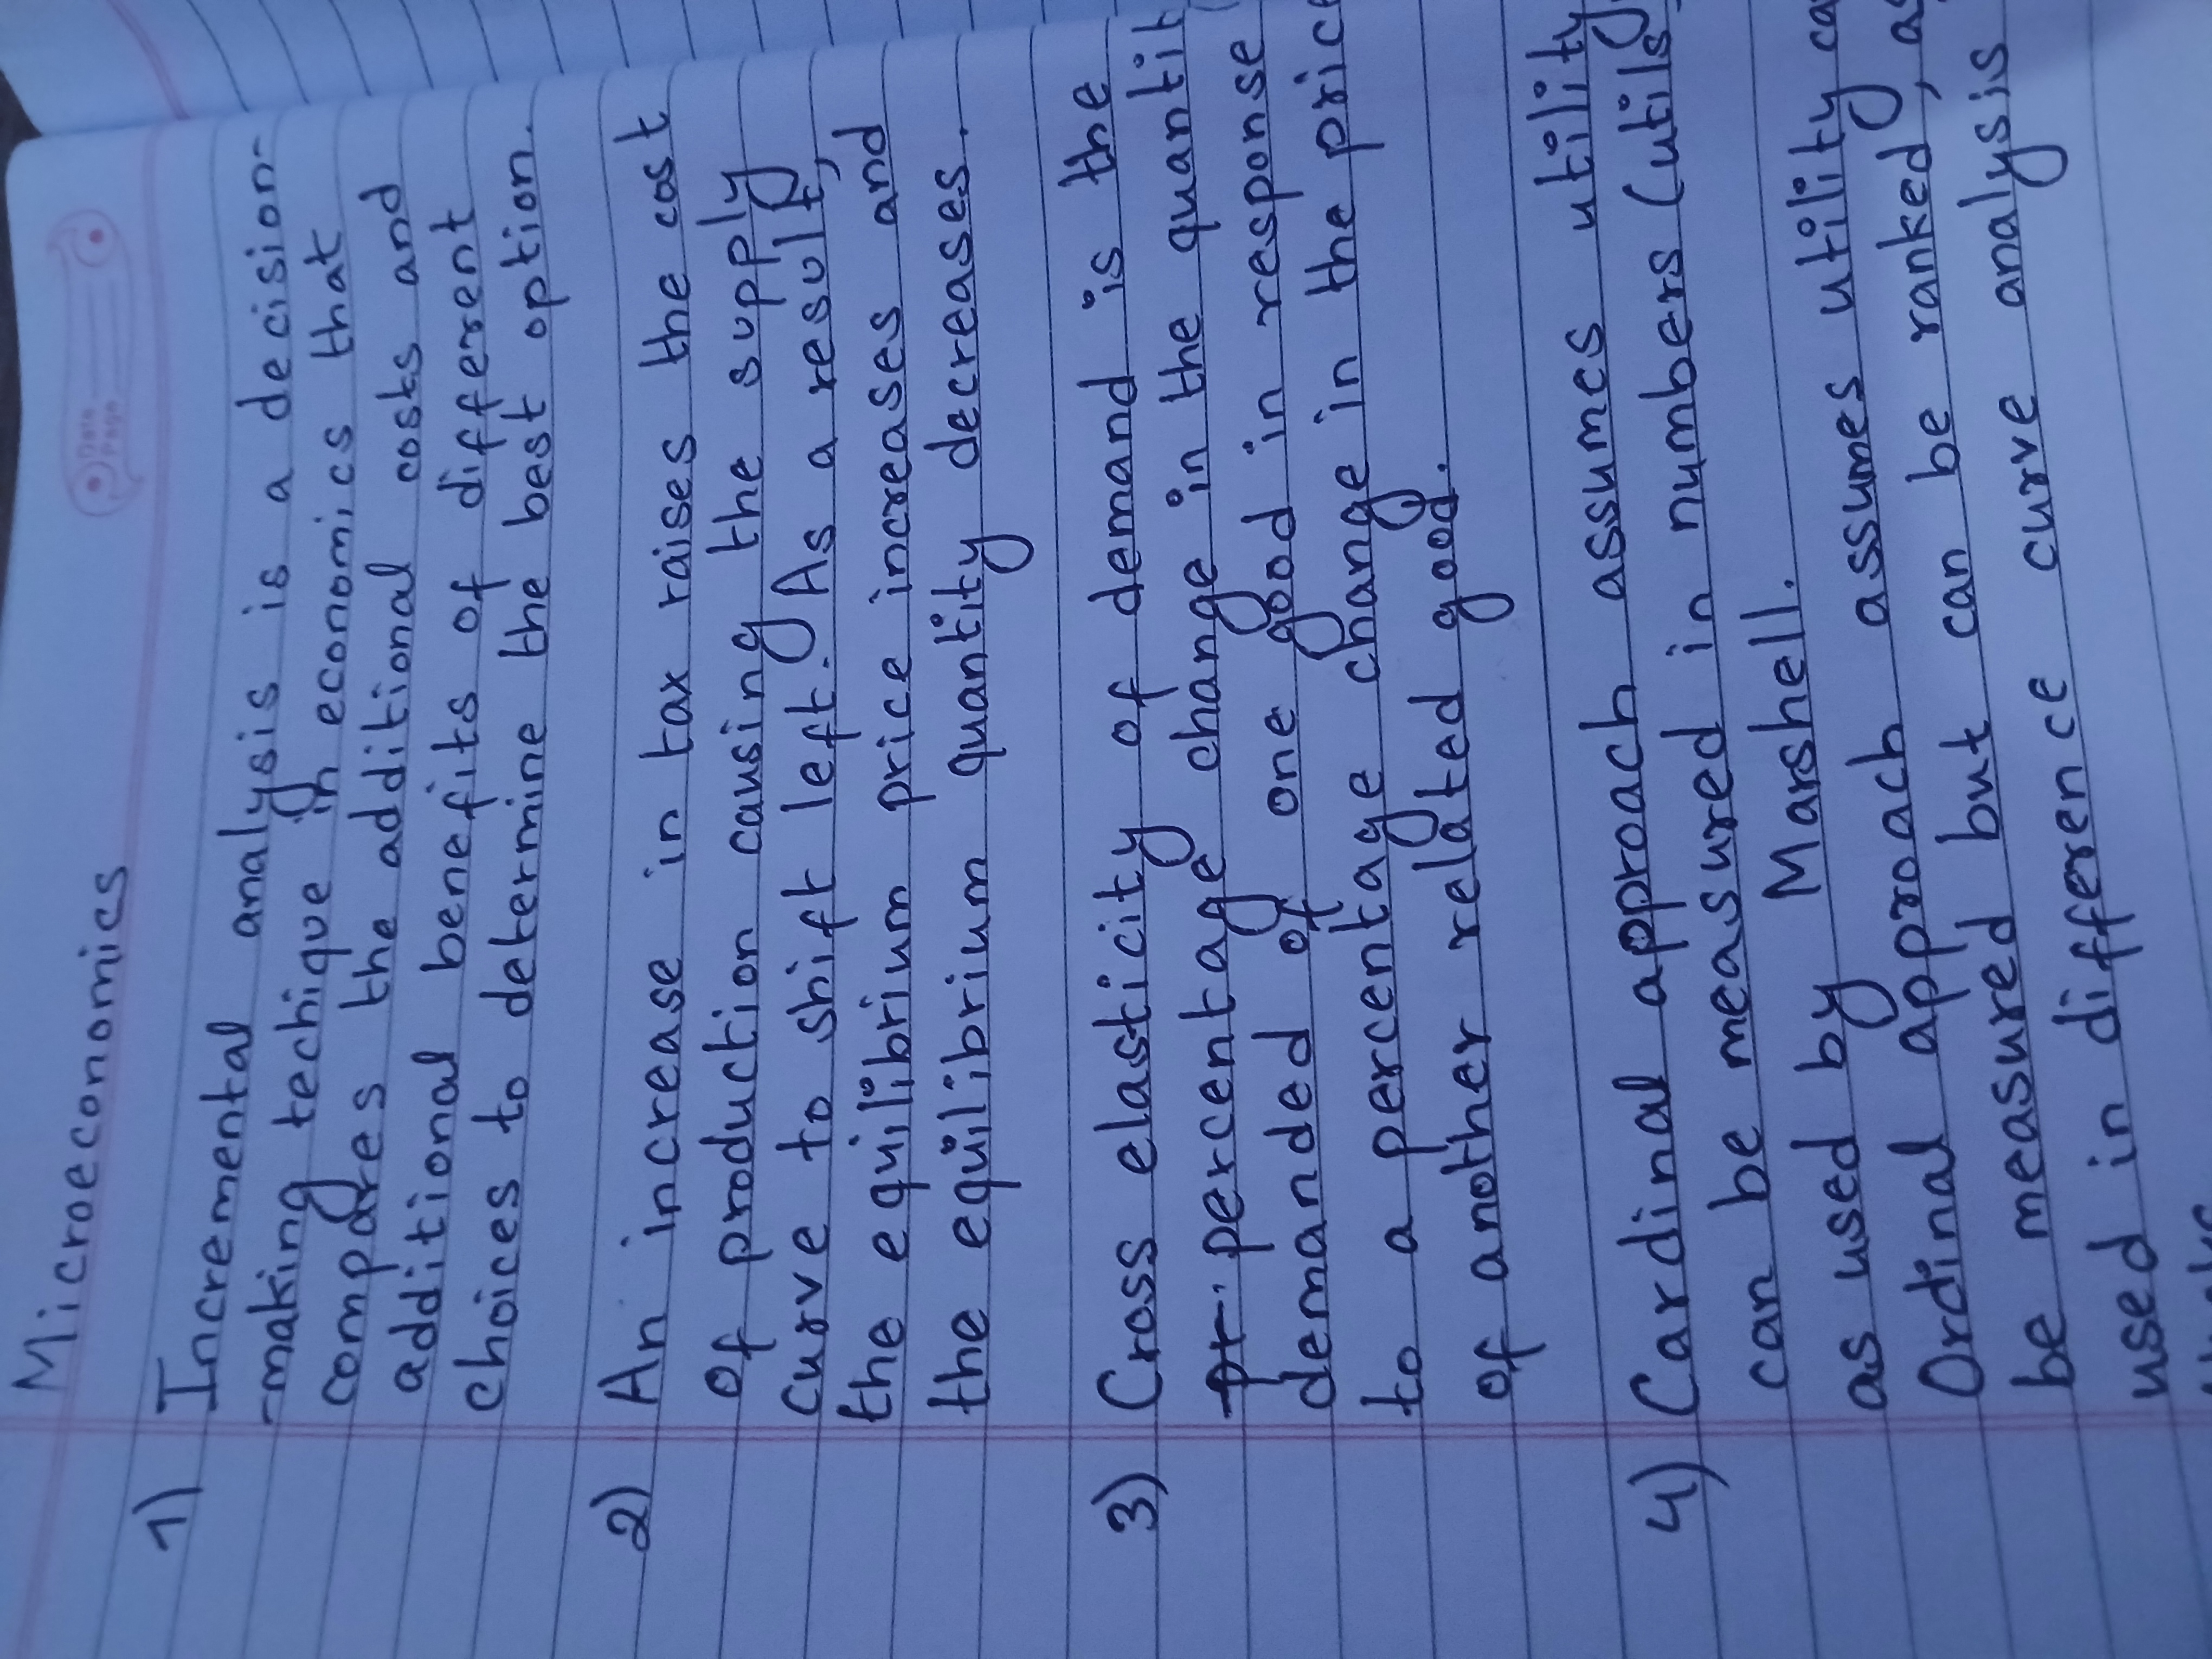 Microeconomics
Date
Page
1) Incremental analysis is a decision-
-making techique in economics that
compares the additional costs and
additional benefits of different
choices to determine the best option.
2) An increase in tax raises the cost
of production causing the supply
curve to shift left. As a result,
the equilibrium price increases and
the equilibrium quantity decreases.
3) Cross elasticity of demand is the
pr. percentage change in the quantit
demanded of one good in response
to a percentage change in the price
of another related good.
4) Cardinal approach assumes utility
can be measured in numbers (utils
as used by Marshell.
Ordinal approach assumes utility ca
be measured but can be ranked, as
used in difference curve analysis